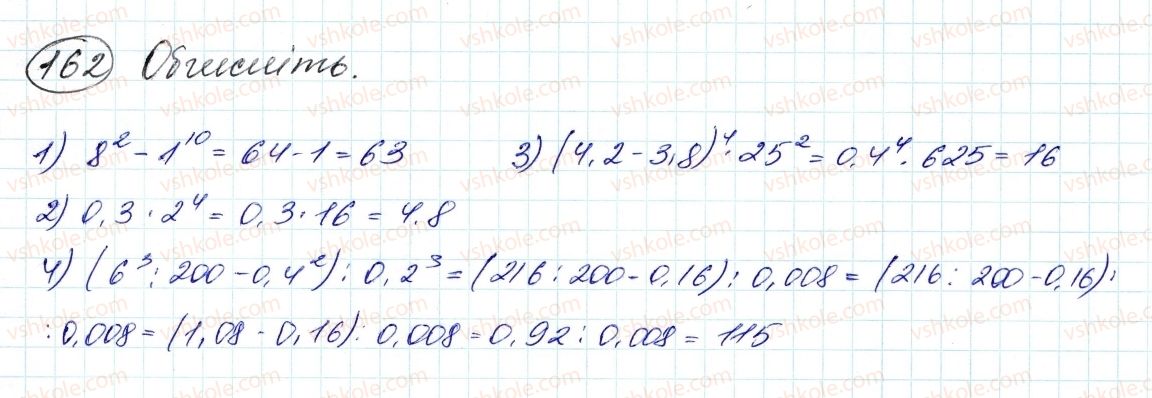 162 Обчисліть.
1) 8² - 1¹⁰ = 64 - 1 = 63 3) (4,2 - 3,8)⁴ · 25² = 0,4⁴ · 625 = 16
2) 0,3 · 2⁴ = 0,3 · 16 = 4,8
4) (6³ : 200 - 0,4²) : 0,2³ = (216 : 200 - 0,16) : 0,008 = (216 : 200 - 0,16) :
: 0,008 = (1,08 - 0,16) : 0,008 = 0,92 : 0,008 = 115